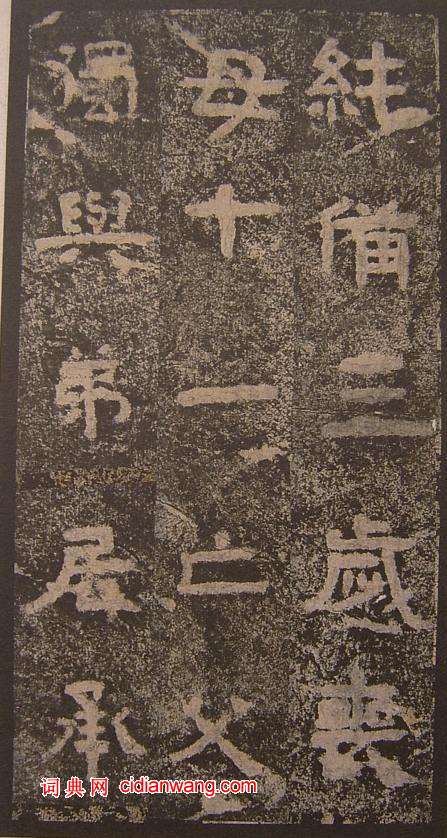 純備三歲喪
母十一亡父
獨與弟居承
词典网 cidianwang.com